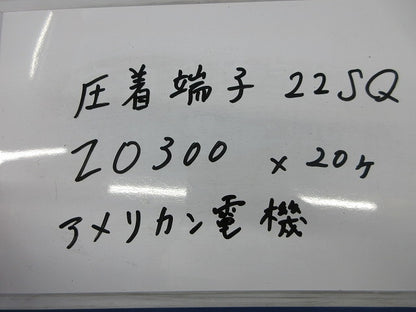 圧着端子 22SQ
Z0300 × 20ヶ
アメリカン電機